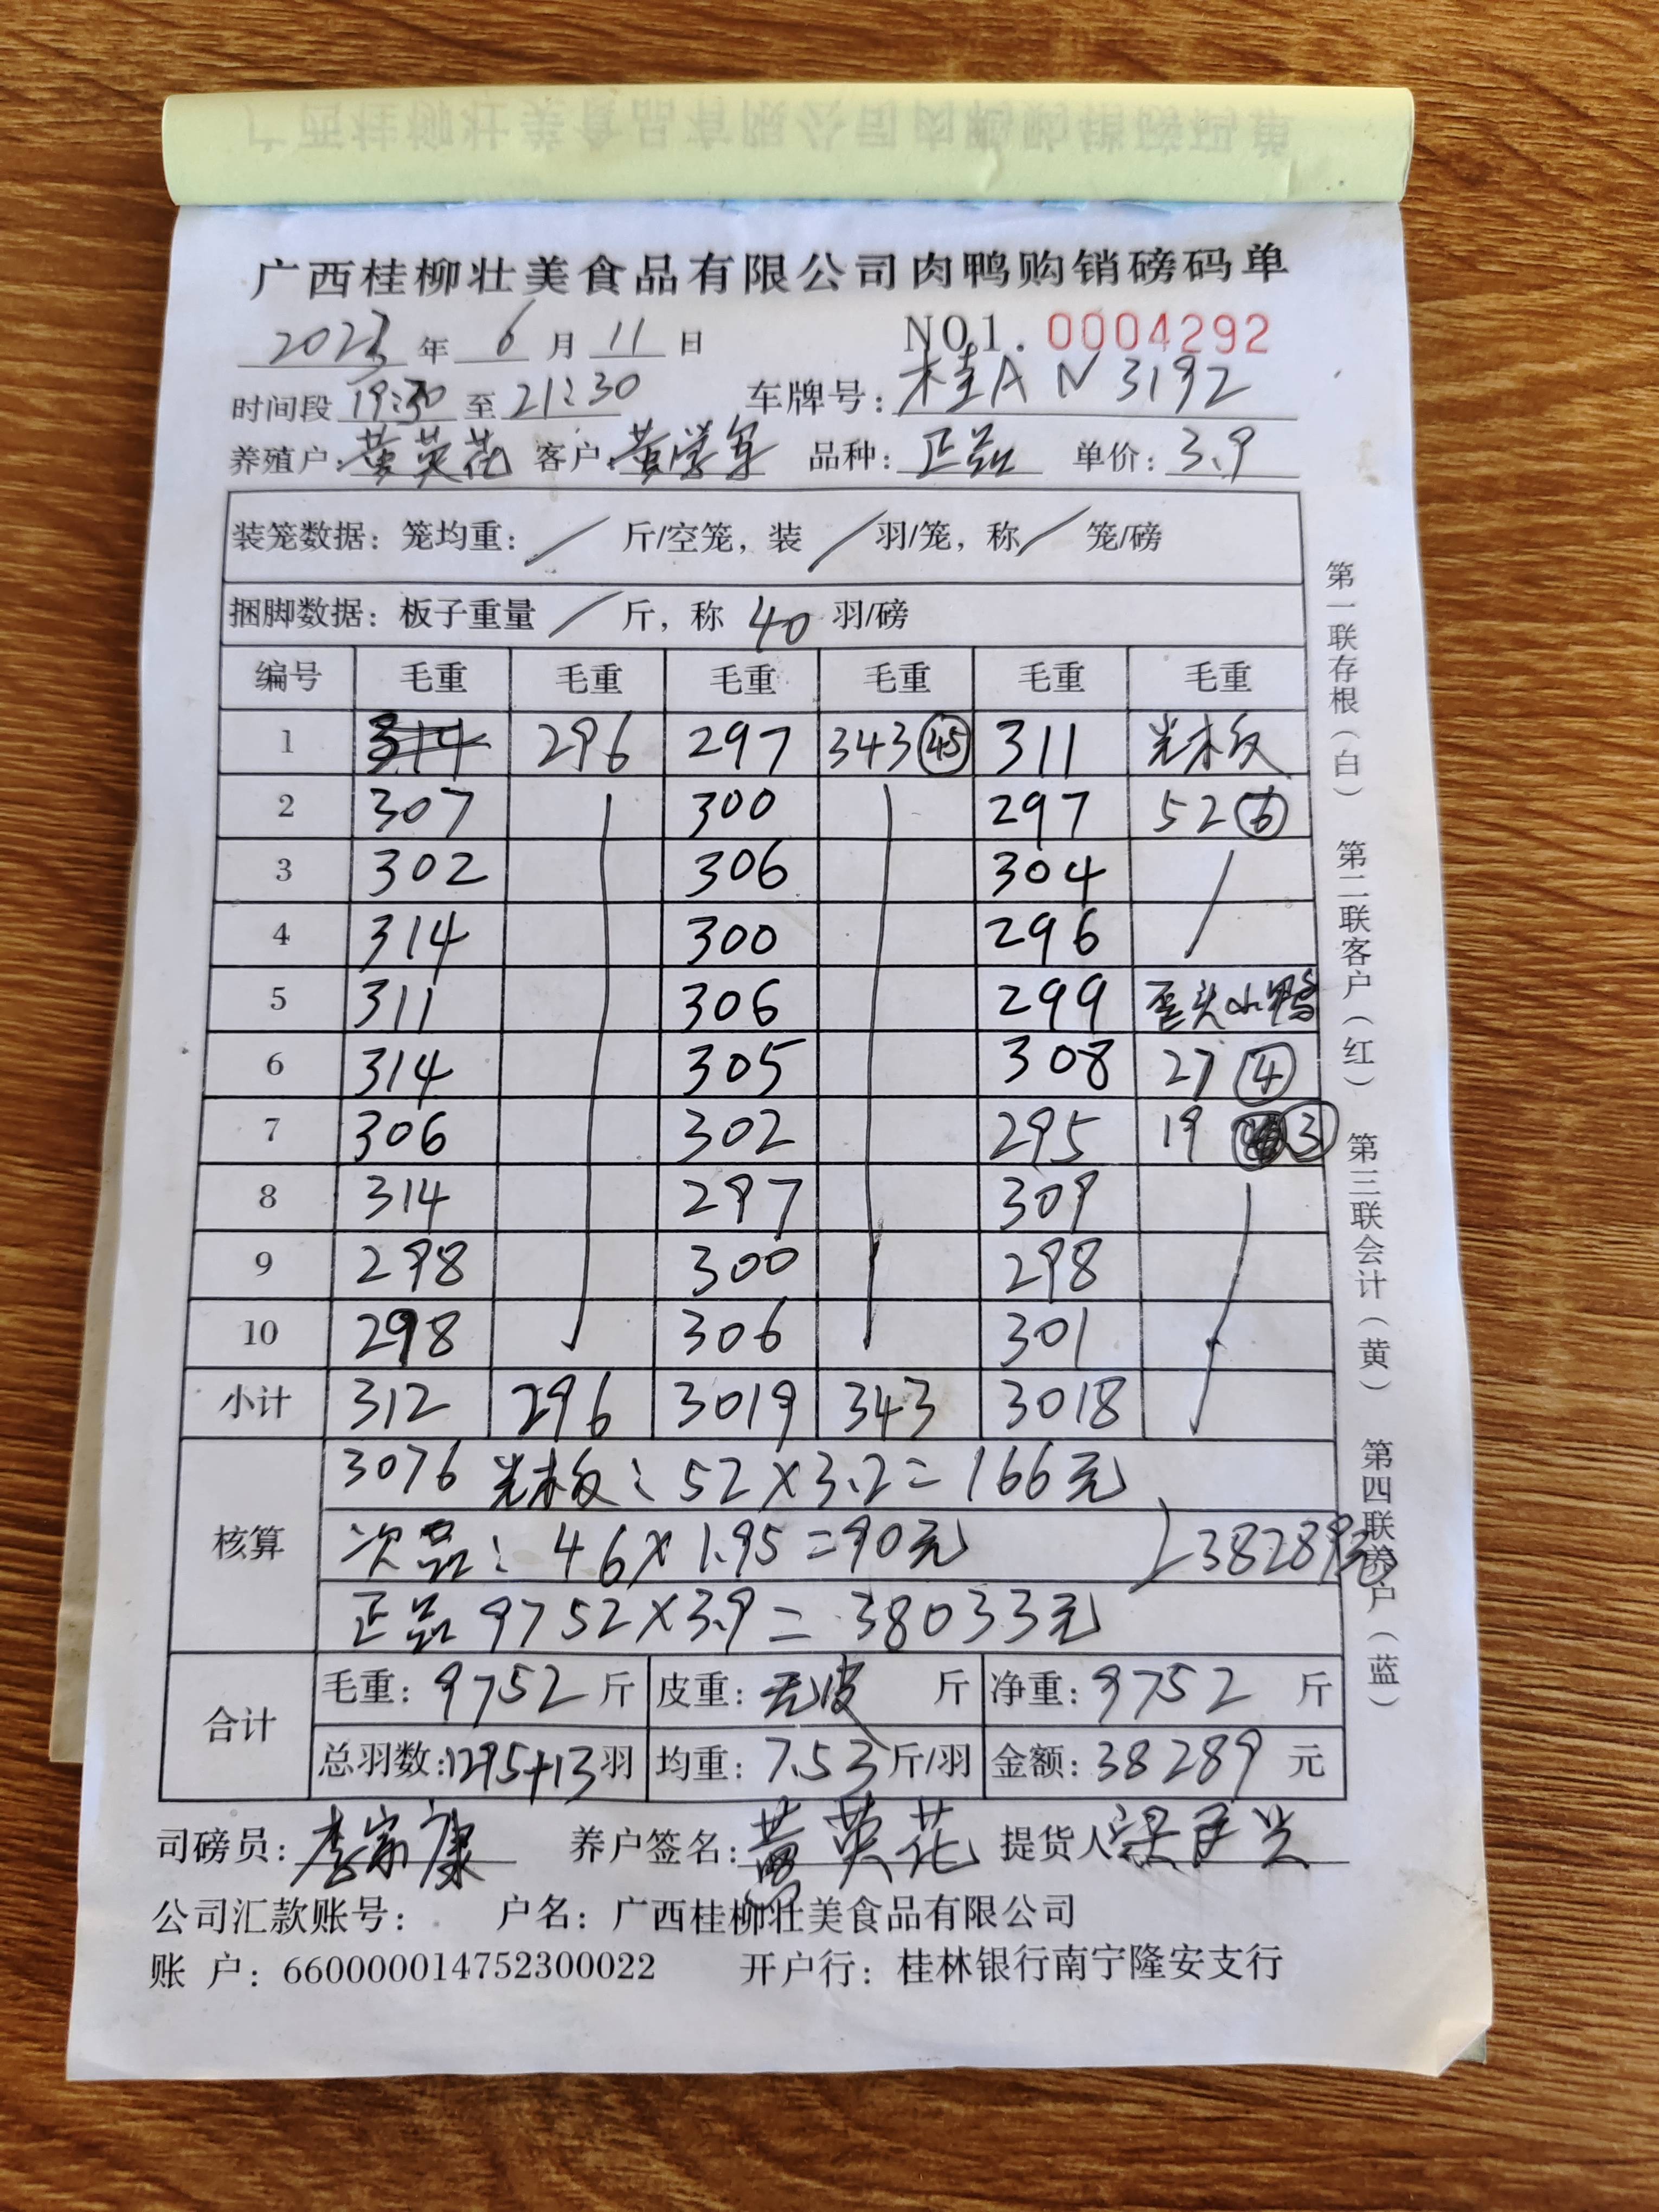 广西桂柳壮美食品有限公司肉鸭购销磅码单
2023年 6 月 11 日 NO1. 0004292
时间段 19:30 至 21:30 车牌号: 桂A N3192
养殖户: 黄英花 客户: 黄学军 品种: 正品 单价: 3.9
装笼数据: 笼均重: / 斤/空笼, 装 / 羽/笼, 称 / 笼/磅
捆脚数据: 板子重量 / 斤, 称 40 羽/磅
编号 毛重 毛重 毛重 毛重 毛重 毛重
1 314 296 297 343 45 311 光板
2 307 300 297 52 6
3 302 306 304
4 314 300 296
5 311 306 299 歪头小鸭
6 314 305 308 27 4
7 306 302 295 19 3
8 314 297 309
9 298 300 298
10 298 306 301
小计 312 296 3019 343 3018
核算 3076 光板: 52×3.2=166元
次品: 46×1.95=90元 38289元
正品 9752×3.9=38033元
合计 毛重: 9752 斤 皮重: 无皮 斤 净重: 9752 斤
总羽数: 1295+13 羽 均重: 7.53 斤/羽 金额: 38289 元
司磅员: 李家康 养户签名: 黄英花 提货人
公司汇款账号: 户名: 广西桂柳壮美食品有限公司
账 户: 660000014752300022 开户行: 桂林银行南宁隆安支行
第一联存根(白) 第二联客户(红) 第三联会计(黄) 第四联养户(蓝)